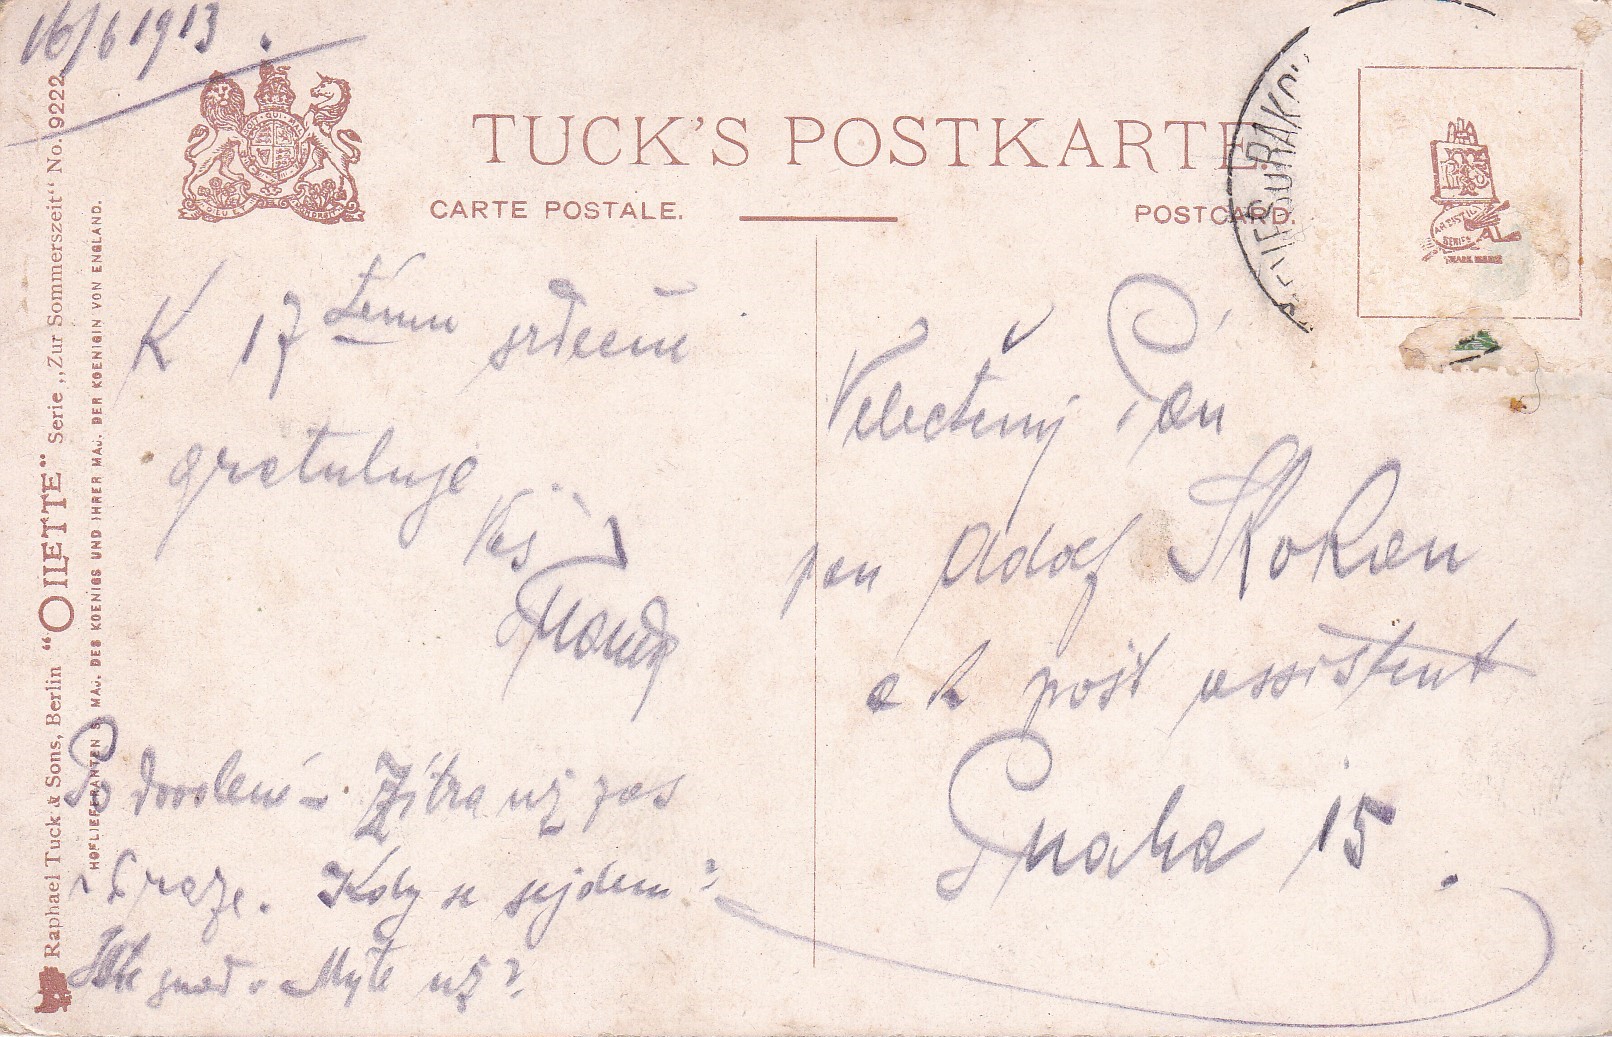 16/6 1913.
TUCK'S POSTKARTE
CARTE POSTALE.
POSTCARD.
Raphael Tuck & Sons, Berlin "OILETTE" Serie „Zur Sommerszeit" No. 9222
HOFLIEFERANTEN S. MAJ. DES KOENIGS UND IHRER MAJ. DER KOENIGIN VON ENGLAND.
ARTISTIC
SERIES
TRADE MARK
K 17 tému srdečně
gratuluje
Váš
Po dovolení. Zítra už zas
v Praze. Kdy se sejdem?
už?
Velectěný Pán
pan Adolf Skokan
c k pošt assistent
Praha 15.